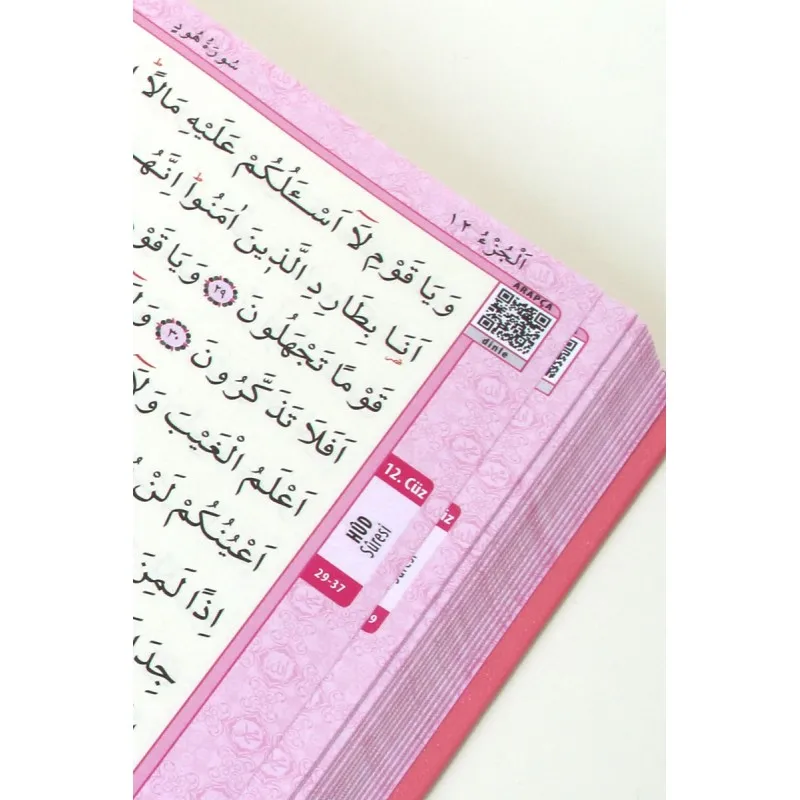 سُورَةُ هُودٍ
اَلْجُزْءُ ١٢
وَيَا قَوْمِ لَٓا اَسْـَٔلُكُمْ عَلَيْهِ مَالًاۜ
اَنَا۬ بِطَارِدِ الَّذ۪ينَ اٰمَنُواۜ اِنَّهُ
قَوْمًا تَجْهَلُونَ ٢٩ وَيَا قَوْ
اَفَلَا تَذَكَّرُونَ ٣٠ وَلَٓا
اَعْلَمُ الْغَيْبَ وَلَٓا
اَعْيُنُكُمْ لَنْ
اِذًا لَمِنَ
جِدَا
ARAPÇA
dinle
12. Cüz
HÛD
Sûresi
29-37